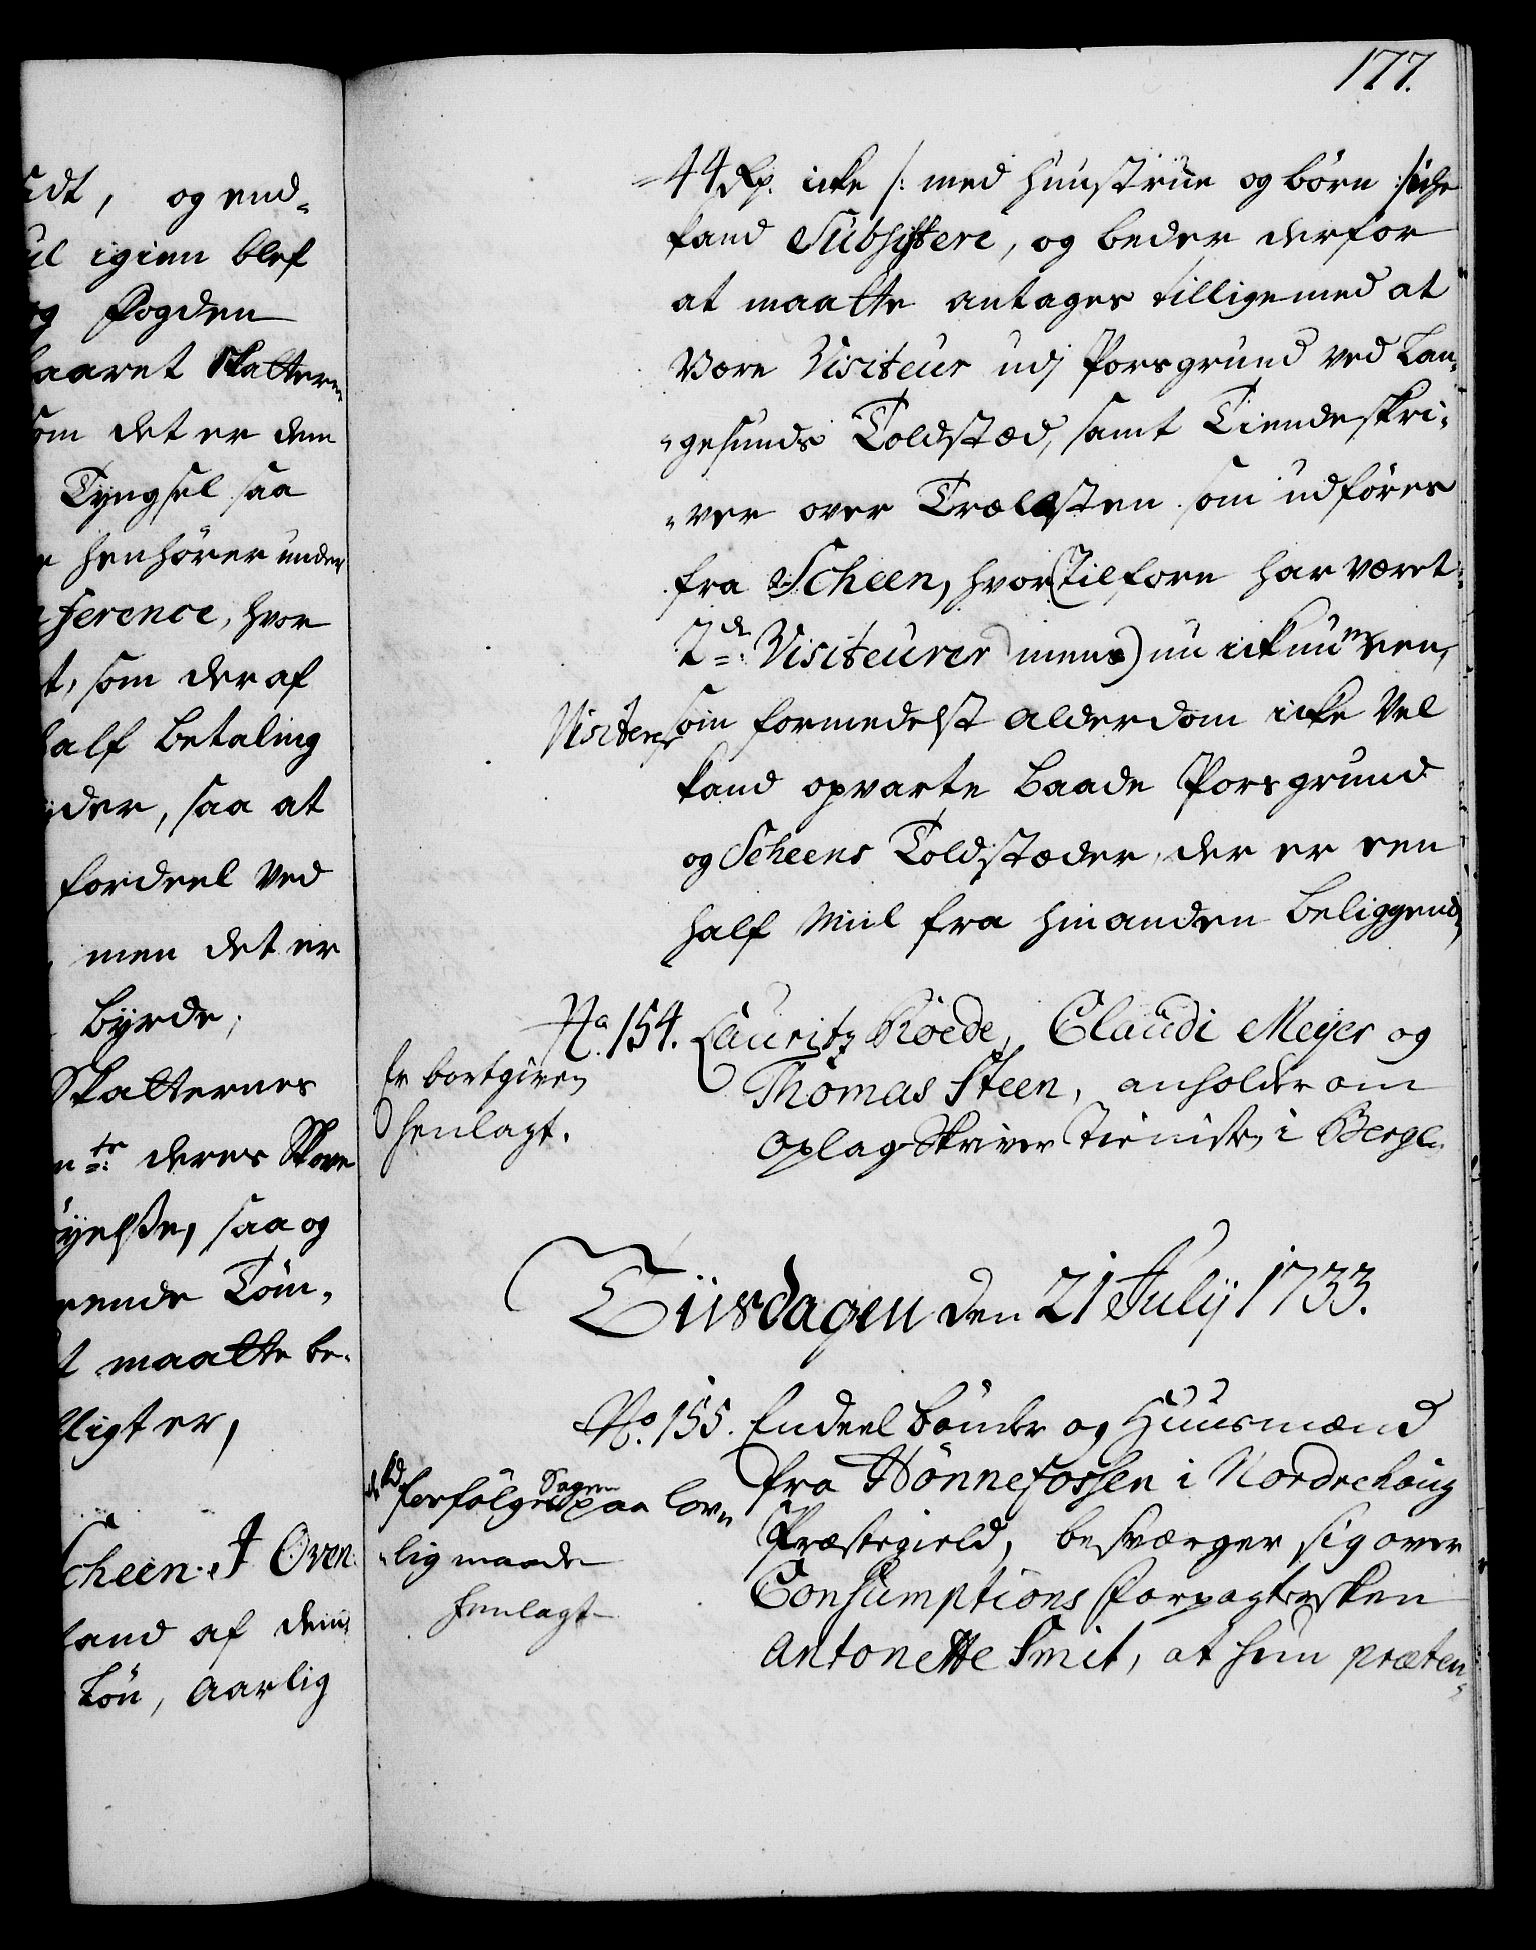 177.
44 Rd. icke /: med Hunstrue og börn :/
kand Subsistere, og beder derfor
at maatte antages tilligemed at
være Visiteur udj Porsgrund ved Lan-
-gesunds Toldstæd, samt Tiendeskri-
-ver over Trælasten som udföres
fra Scheen, hvor tilforn har været
2de Visiteurer mens) nu ickun een,
Visiterer
som formedelst Alderdom icke vel
kand opvarte baade Porsgrund
og Scheens Toldstæder, der er een
half Miil fra hinanden beliggende
No. 154. Lauritz Röede, Claudi Meyer og
Thomas Steen, anholder om
Oplag Skriver Tieniste i Bergen
Er bortgiven
henlagt.
Tiisdagen den 21 Julij 1733.
No. 155. Endeel bönder og Huusmænd
fra Hönnefossen i Nordrehoug
Præstegield, besværger sig over
Consumptions Forpagtersken
Antonette Smit, at hun præten-
forfölges Sagen paa lov-
-lig maade
henlagt
idt, og end-
igien blef
og Fogden
aaret Skatterne
som det er dem
Tyngsel saa
henhörer under
ference, hvor
t, som deraf
half betaling
yder, saa at
fordeel ved
men det er
byrde,
Skatternes
deres Skove
öyelsse, saa og
rende Töm-
t maatte be-
ligt er,
cheen. J Oven
kand af den
Lön, Aarlig